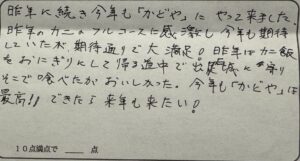 昨年に続き今年も「かどや」にやって来ました
昨年のカニのフルコースに感激し今年も期待
していたが、期待通りで大満足！昨年はカニ飯
をおにぎりにして帰る途中で出石城に寄り
そこで食べたがおいしかった。今年も「かどや」は
最高!!できたら来年も来たい！
10点満点で　　点